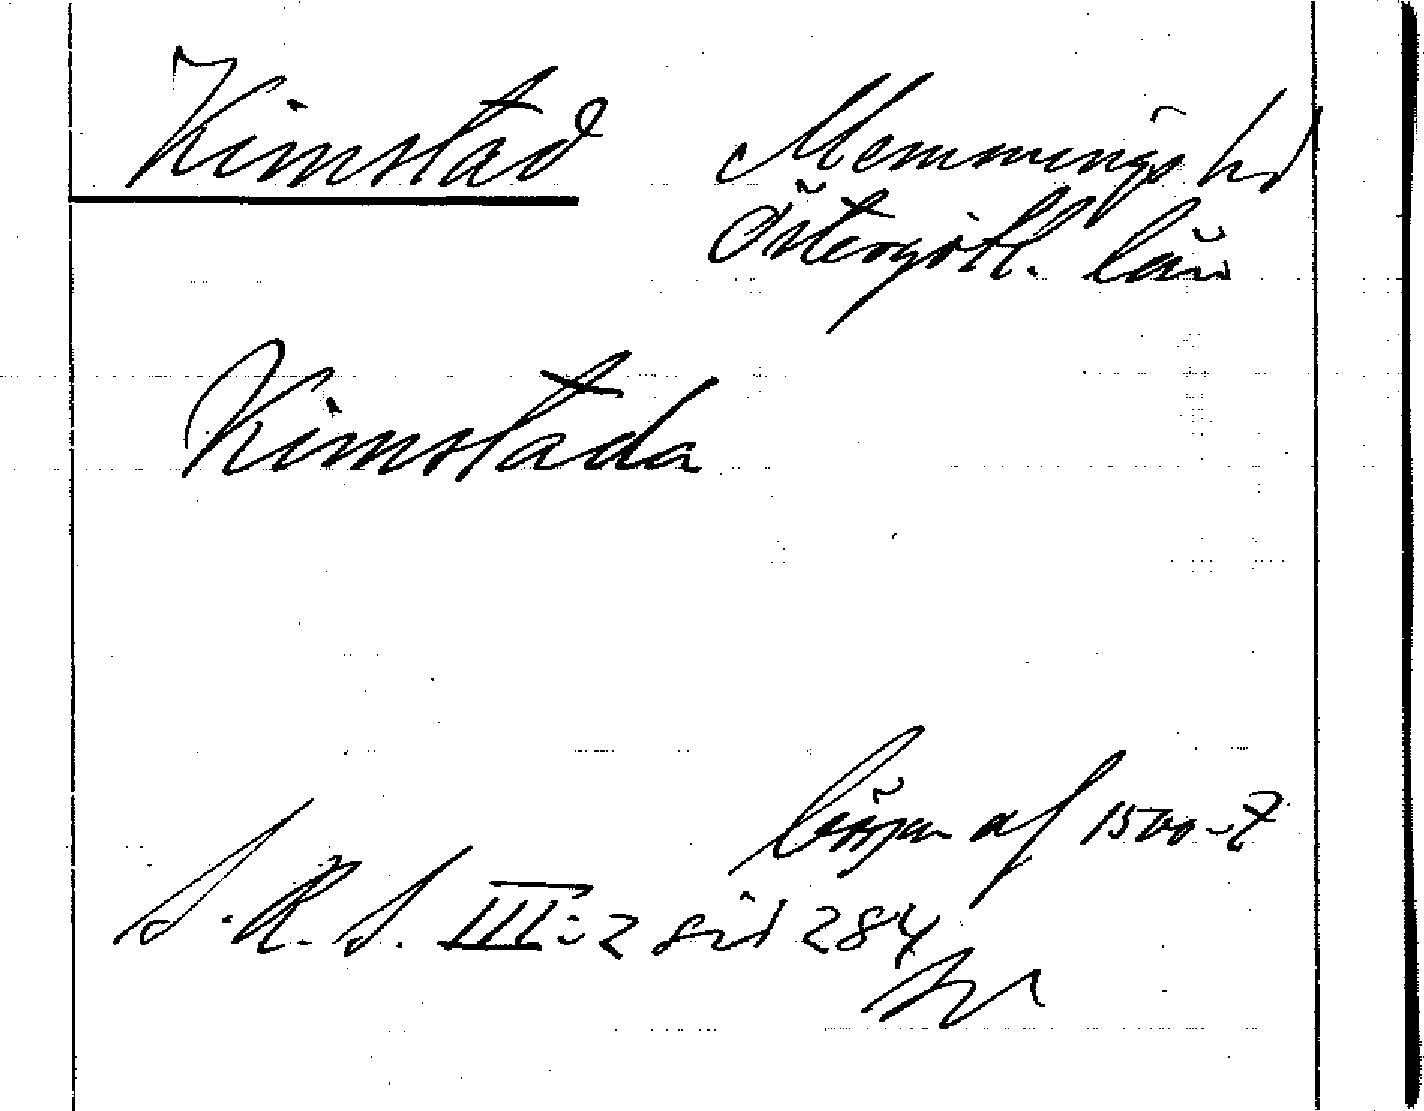 Kimstad Memmings hd
Östergötl. län
Kimstada
början af 1500-t
S. R. S. III:2 sid 284